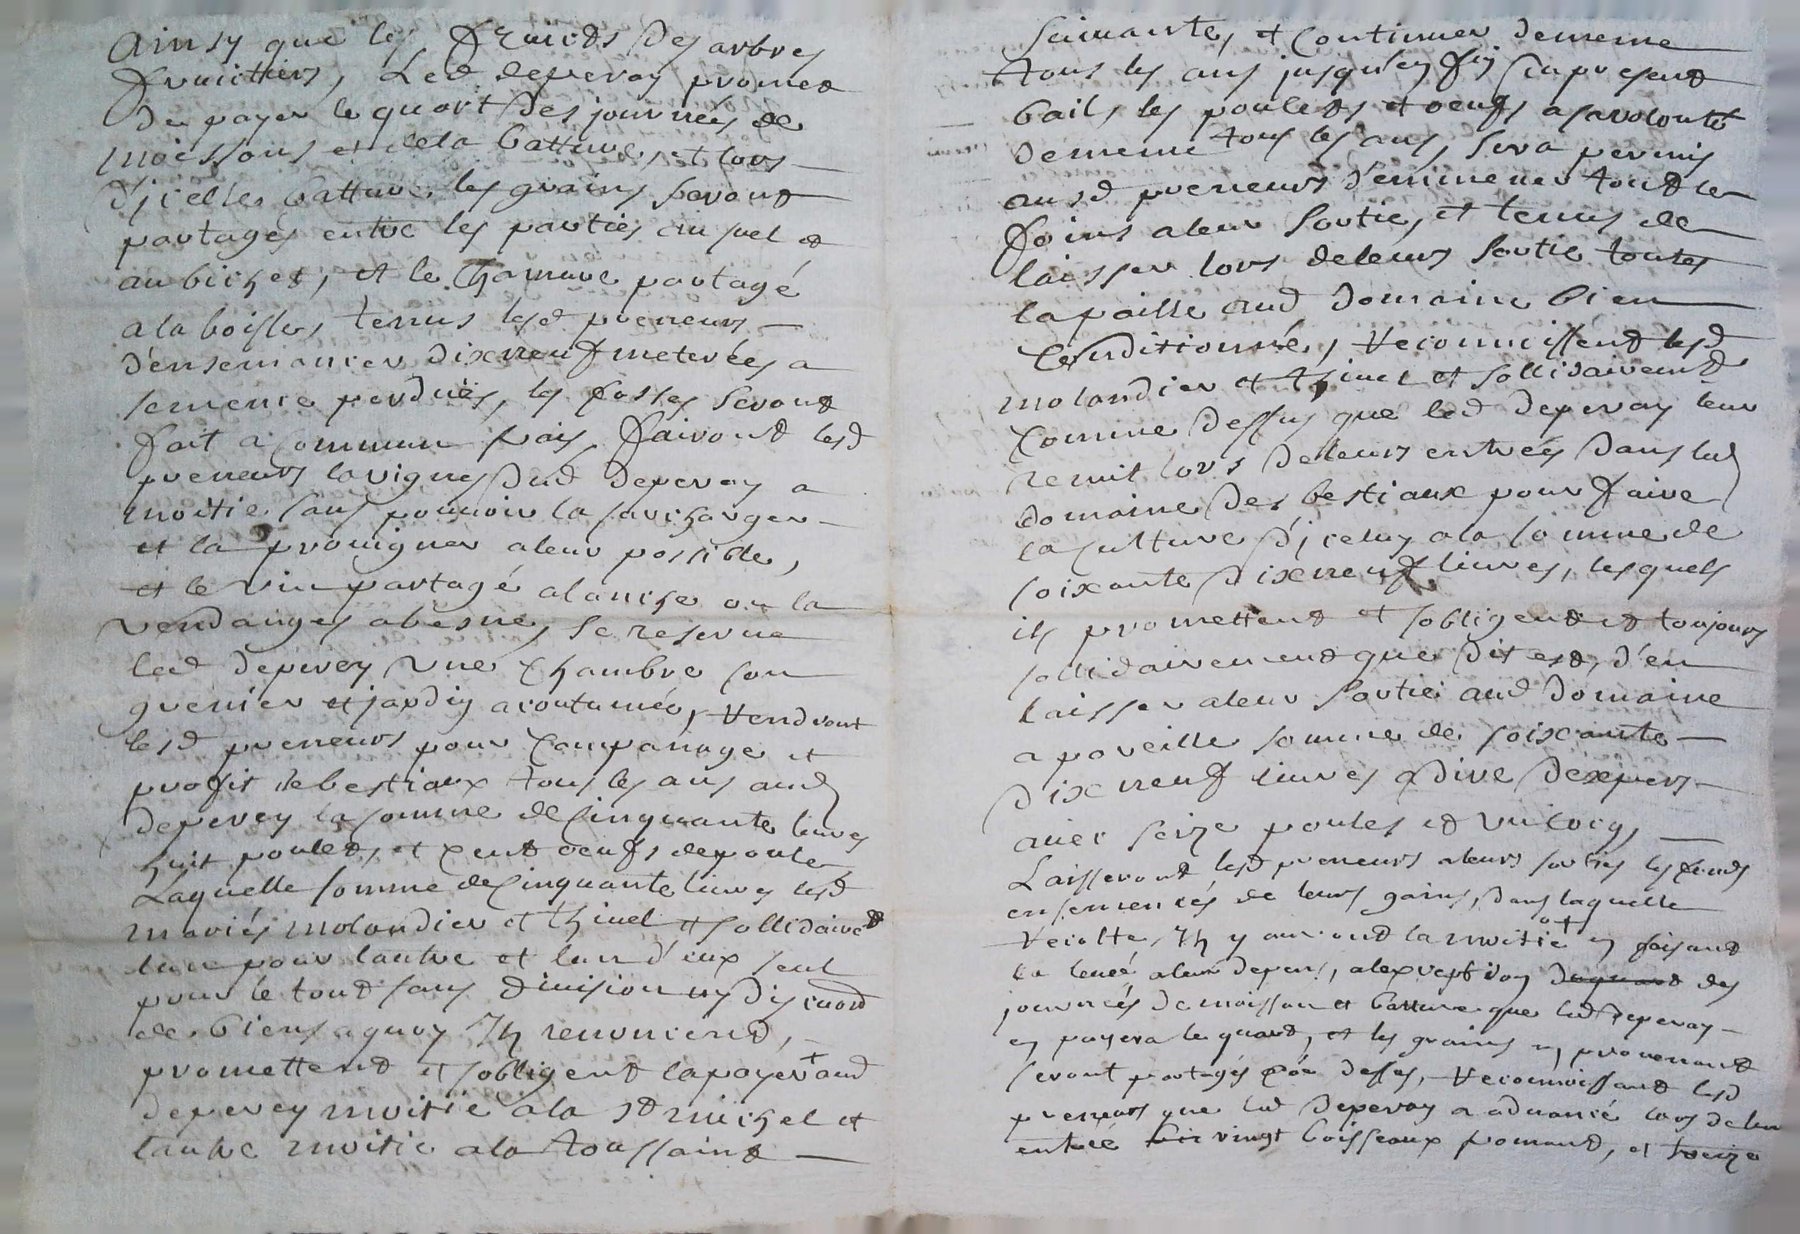 Ainsy que les fruicts des arbres
fruittiers, Led deperay promet
De payer le quart des journées de
moissons et de la batture, et lors
d'jcelle batture, les grains seront
partagés entre les parties au suel et
au bichet, et le Chanvre partagé
a la boisse, tenus lesd preneurs
d'ensemancer dixneuf meterées a
semence perduës, les fosses seront
fait a commun frais, fairont lesd
preneurs la vignes Dud deperay a
moitié sans pouvoir la surcharger
et la provigner a leur possible,
et le vin partagé a lanche ou la
vendanges a besnes, Se reserve
led deperey une Chambre son
grenier et jardin acoutumée, Rendront
lesd preneurs pour Companage et
profit de bestiaux tous les ans aud
deperey la somme de Cinquante livres
huit poulets, et Cent oeufs de poule
Laquelle somme de Cinquante livres lesd
mariés molandier et thinel et sollidairemt
lun pour lautre et lun d'eux seul
pour le tout sans division ny discution
de biens a quoy Ils renoncent,
promettent et sobligent la payer + aud
deperey moitié a la St michel et
lautre moitié a la toussaint
Suivante, et Continuer de meme
tous les ans jusqu'en fin du present
bail, les poulets et oeufs a sa volonté
de meme tous les ans, Sera permis
ausd preneurs d'emmener tout les
foins a leur Sortie, et tenus de
laisser lors de leurs Sortie toutes
la paille aud Domaine bien
Conditionnée, Reconnoissent lesd
molandier et thinel et sollidairement
Comme dessus que led deperay leur
remit lors de leurs entrées dans led
domaine des bestiaux pour faire
la Culture d'jceluy a la somme de
soixante dixneuf livres, lesquels
ils promettent et sobligent et toujours
sollidairement que dit est, d'en
laisser a leur Sortie aud Domaine
a pareille somme de soixante
dix neuf livres a dire dexpers
avec seize poules et un Coq,
Laisseront lesd preneurs a leurs sorties les fonds
ensemencés de leurs grains, dans laquelle
Recolte, Ils y auront la moitié + en faisant
la levée a leur depens, a lexception des
journées de moisson et batture que led deperay
en payera le quart, et les grains en provenant
seront partagés Coe. dessus, Reconnoissant lesd
preneurs que led Deperay a advancé lors de leur
entrée vingt boisseaux froment, et treize